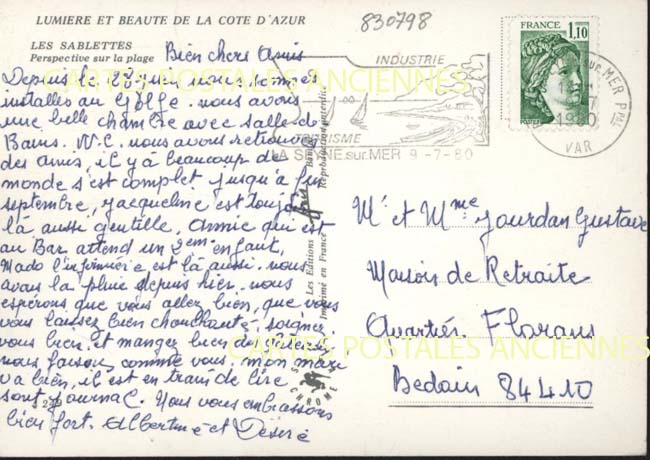 LUMIERE ET BEAUTE DE LA COTE D'AZUR
830798
LES SABLETTES
Perspective sur la plage
Bien chers Amis
Depuis le 28 juin nous sommes
installés au Golfe. nous avons
une belle chambre avec salle de
Bains. W.C. nous avons retrouvés
des amis, il y à beaucoup de
monde s'est complet jusqu'a fin
septembre, Jacqueline est toujours
là aussi gentille, Annie qui est
au Bar attend un 2em enfant,
Mado l'infirmière est là aussi. nous
avons la pluie depuis hier. nous
espérons que vous allez bien, que vous
vous laissez bien chouchouter. soignez
vous bien, et mangez bien des gateaux
nous faisons comme vous. mon mari
va bien, il est en train de lire
son journal. Nous vous embrassons
bien fort. Albertine et Désiré
INDUSTRIE
TOURISME
LA SEYNE sur MER 9-7-80
FRANCE
1,10
POSTES
sur MER PPAL
1980
VAR
Les Editions
Imprimé en France
Reproduction interdite
CHROME
M. et Mme Jourdan Gustave
Maison de Retraite
Quartier Florans
Bedoin 84410
CARTES POSTALES ANCIENNES
CARTES POSTALES ANCIENNES